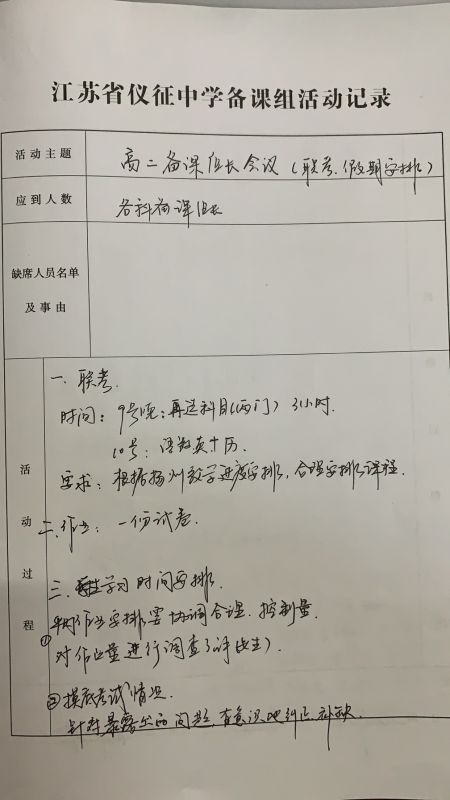 江苏省仪征中学备课组活动记录
活动主题
高二备课组长会议（联考、假期安排）
应到人数
各科备课组长
缺席人员名单
及事由
活动过程
一、联考.
时间：9号晚：再选科目(两门) 3小时.
10号：语数英+历.
要求：根据扬州教学进度安排，合理安排课程.
二、作业：一份试卷.
三、学习时间安排.
① 作业安排要协调合理.控制量.
对作业量进行调查
② 摸底考试情况.
针对暴露出的问题，有意识地纠正、补缺.